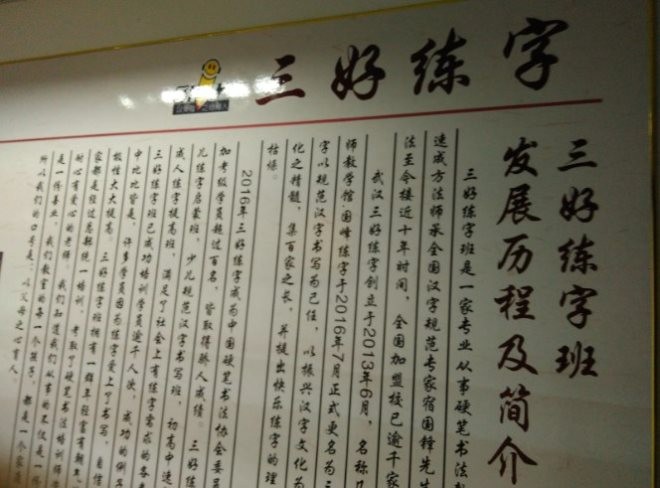 三好练字
三好练字班
发展历程及简介
三好练字班是一家专业从事硬笔书法教
速成方法师承全国汉字规范专家宿国锋先生
法至令接近十年时间，全国加盟校已逾千家
武汉三好练字创立于2013年6月，名称几
师教学馆·国峰练字于2016年7月正式更名为三
字以规范汉字书写为己任，以振兴汉字文化为
化之精髓，集百家之长，并提出快乐练字的理
枯燥。
2016年三好练字成为中国硬笔书法协会委员
加考级学员超过百名，皆取得骄人成绩。三好练
儿练字启蒙班，少儿规范汉字书写班，初高中速
成人练字提高班，满足了社会上有练字需求的各
三好练字班已成功培训学员逾千人次，成功的例
中比比皆是，许多学员因为练字爱上了书写，自信
极性大大提高。三好练字班拥有一群年轻富有朝
家都是经过总部统一培训，考取了硬笔书法培训师
耐心有爱心的老师。我们知道我们从事的不仅是一份
是一件善业，我们教室的每一个孩子，都是一个家
所以我们的口号是：以父母之心育人。